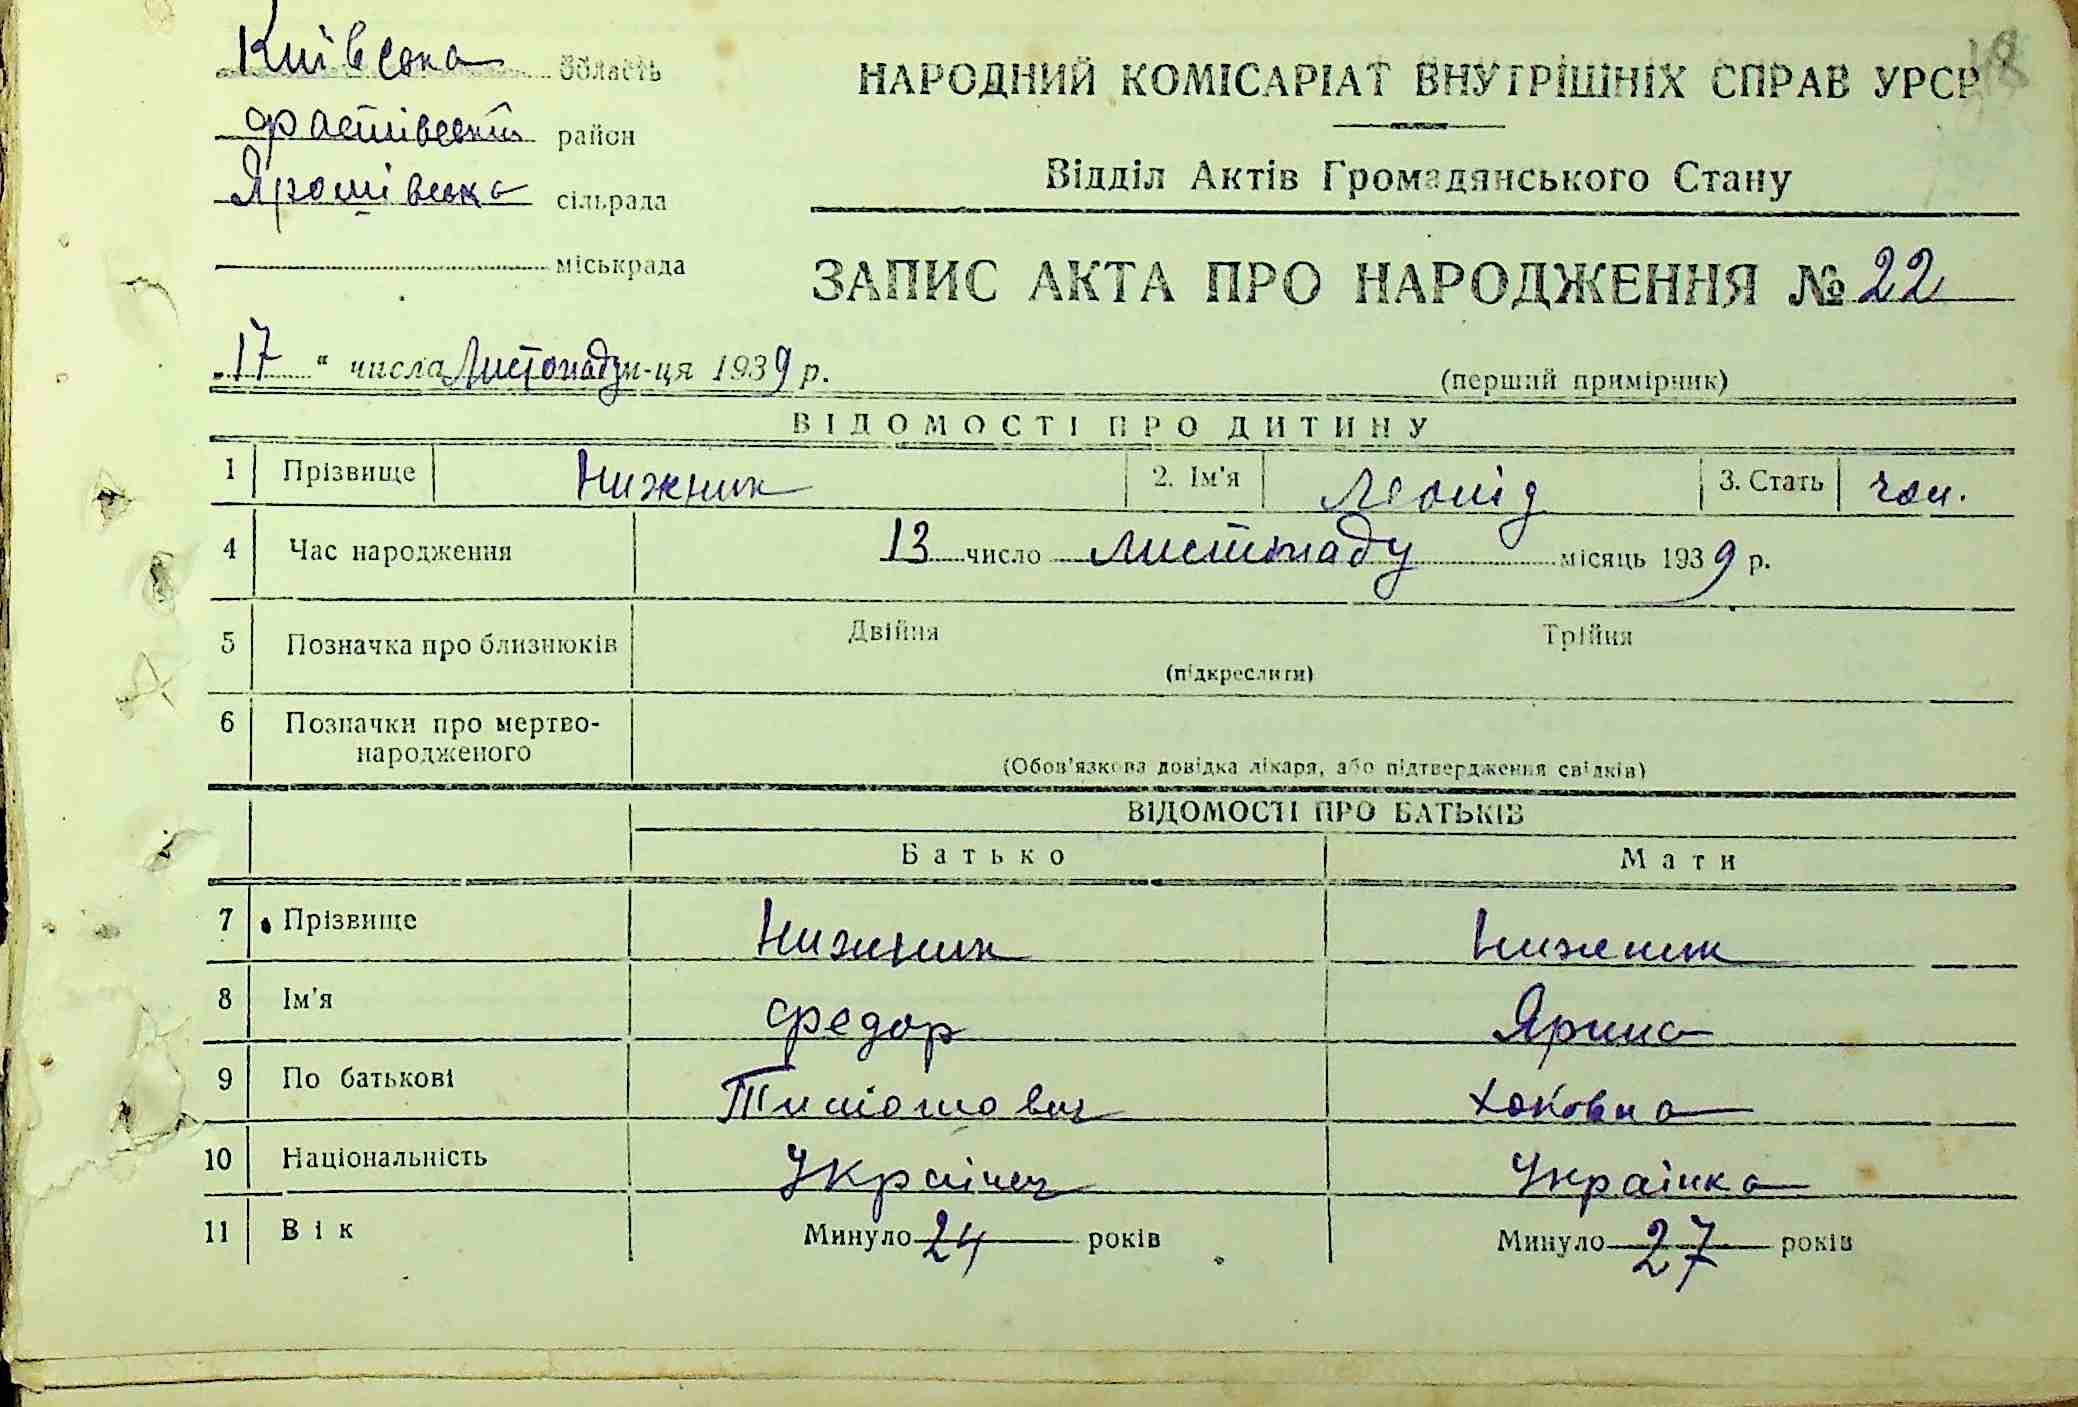 Київська область
Фастівський район
Ярошівська сільрада
міськрада
18
НАРОДНИЙ КОМІСАРІАТ ВНУТРІШНІХ СПРАВ УРСР
Відділ Актів Громадянського Стану
ЗАПИС АКТА ПРО НАРОДЖЕННЯ № 22
„17“ числа Листопаду м-ця 1939 р.
(перший примірник)
ВІДОМОСТІ ПРО ДИТИНУ
1 Прізвище Нижник 2. Ім'я Леонід 3. Стать чол.
4 Час народження 13 число листопаду місяць 1939 р.
5 Позначка про близнюків Двійня Трійня
(підкреслити)
6 Позначки про мертво-
народженого
(Обов'язкова довідка лікаря, або підтвердження свідків)
ВІДОМОСТІ ПРО БАТЬКІВ
Батько Мати
7 Прізвище Нижник Нижник
8 Ім'я Федор Ярина
9 По батькові Тимошович
10 Національність Українец Українка
11 Вік Минуло 24 років Минуло 27 років